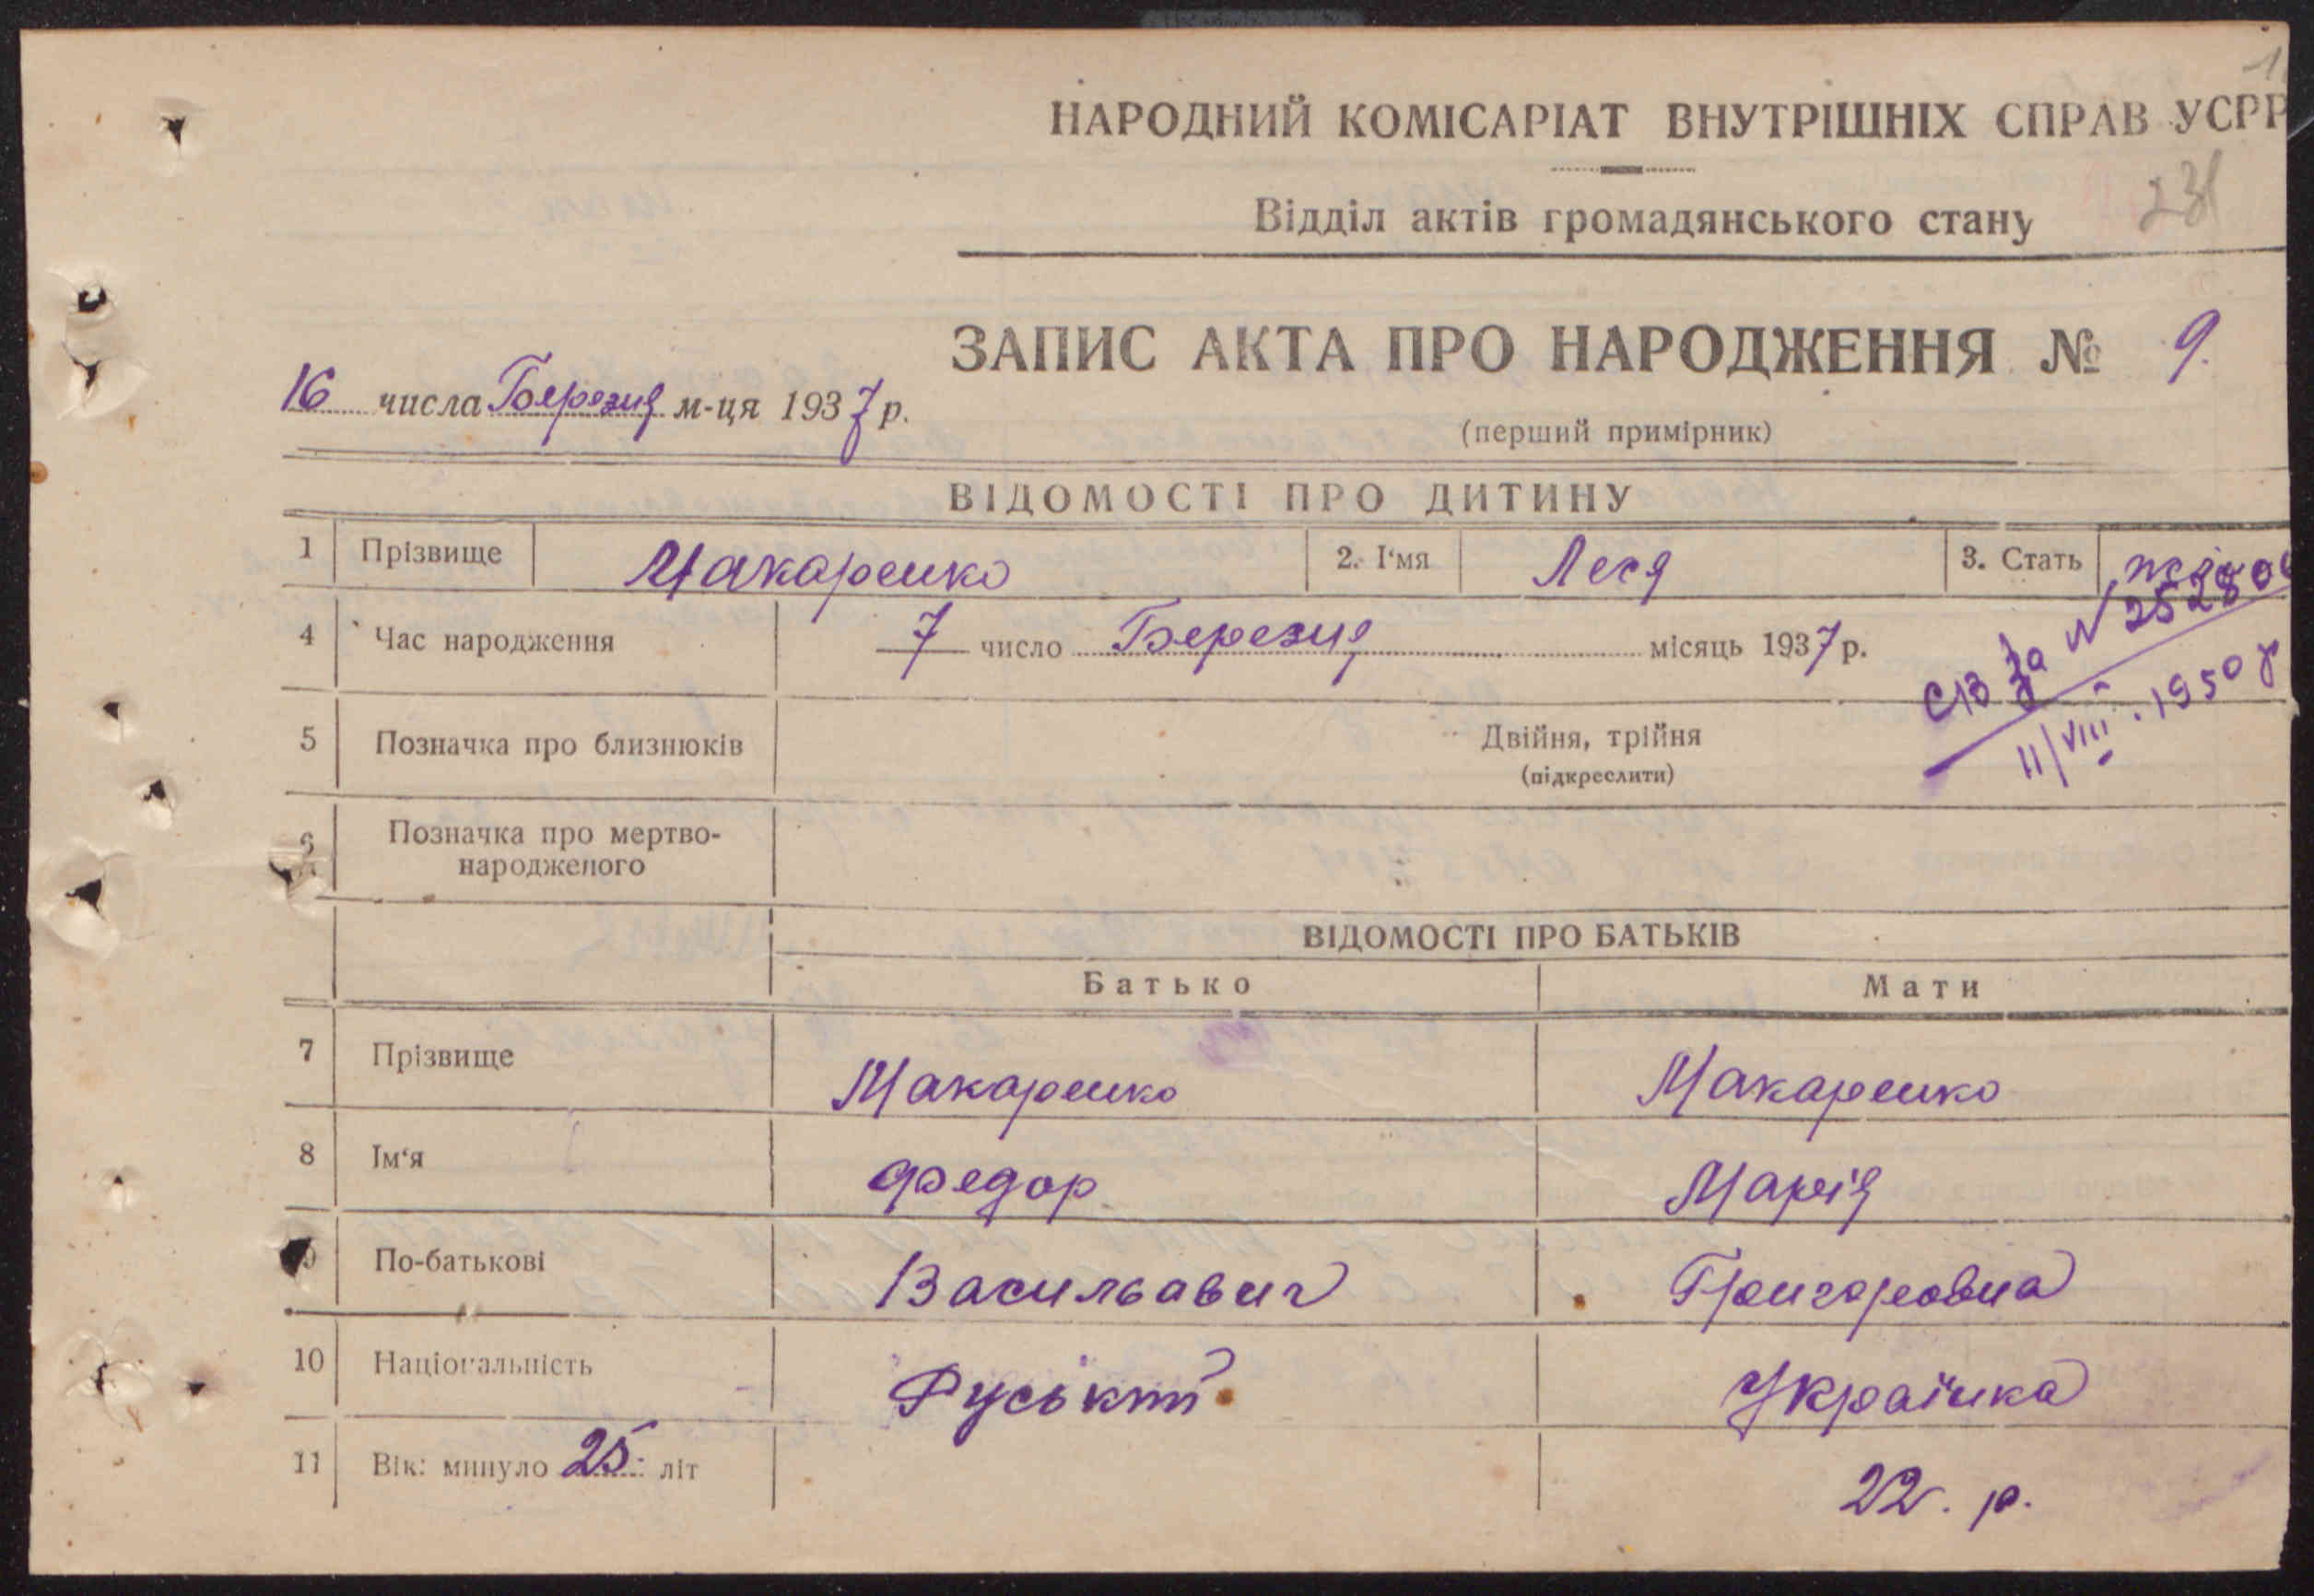 1
НАРОДНИЙ КОМІСАРІАТ ВНУТРІШНІХ СПРАВ УСРР
Відділ актів громадянського стану
231
ЗАПИС АКТА ПРО НАРОДЖЕННЯ № 9.
16 числа Березня м-ця 1937 р.
(перший примірник)
ВІДОМОСТІ ПРО ДИТИНУ
1 Прізвище Макаренко 2. І'мя Леся 3. Стать
4 Час народження 7 число Березня місяць 1937 р.
СВ за № 252800
11/VIII. 1950 р
5 Позначка про близнюків Двійня, трійня
(підкреслити)
6 Позначка про мертво-
народженого
ВІДОМОСТІ ПРО БАТЬКІВ
Батько Мати
7 Прізвище Макаренко Макаренко
8 Ім'я Федор Марія
9 По-батькові Васильавич Григоровна
10 Національність Руський Українка
11 Вік: минуло 25 літ 22. р.